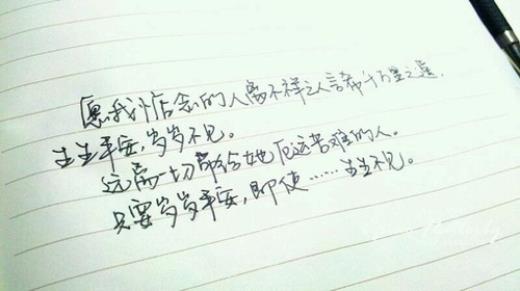 愿我惦念的人离不祥之人言希千万里之遥,
生生平安,岁岁不见。
远离一切带给她厄运苦难的人。
只要岁岁平安,即使……生生不见。